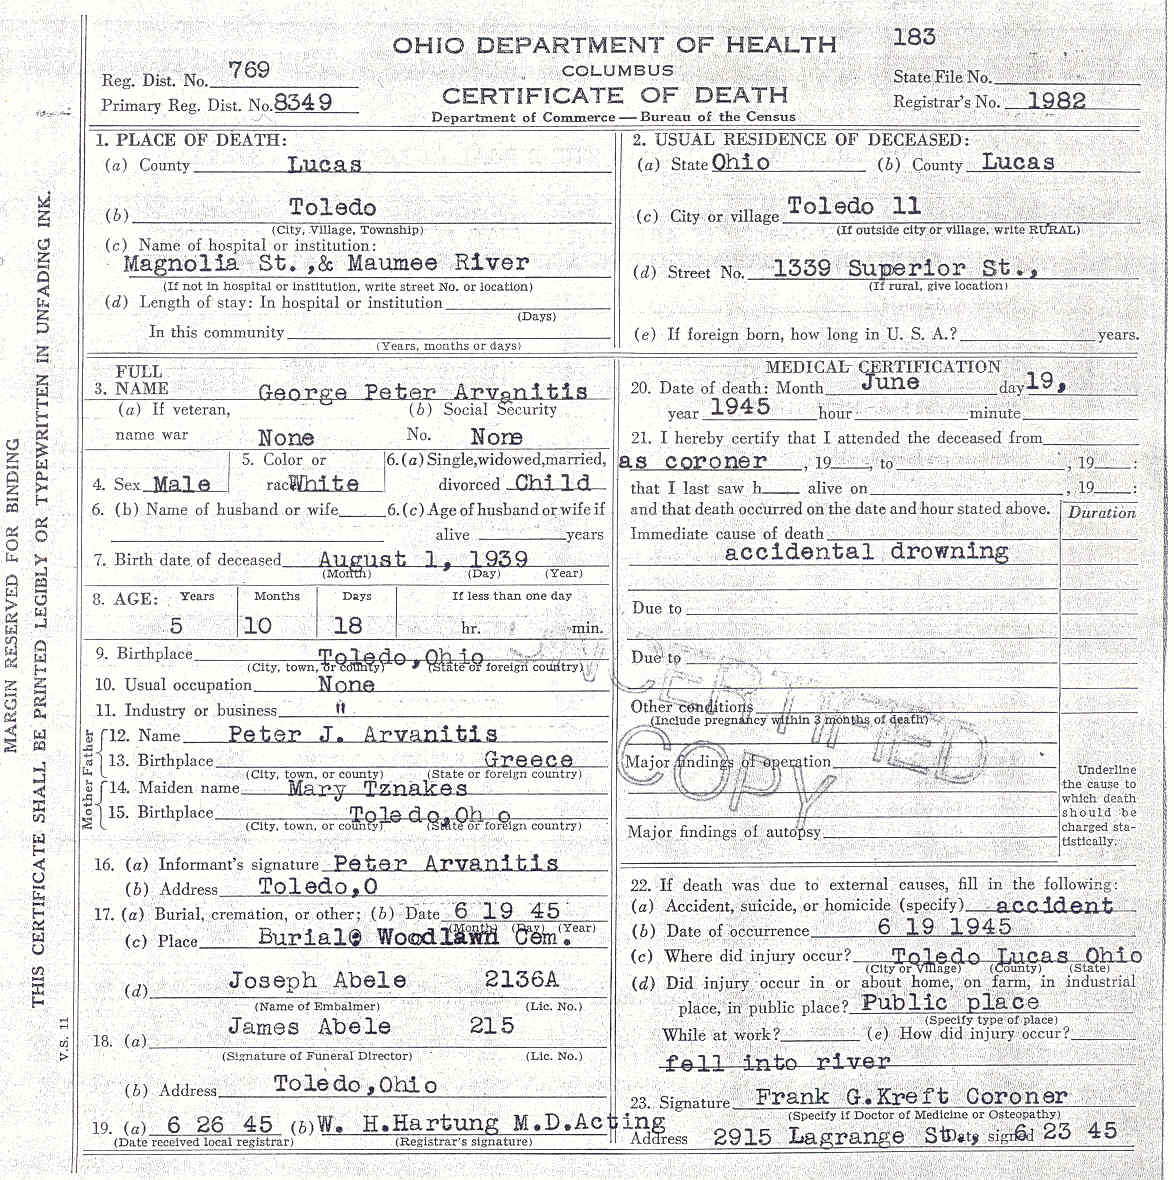 183
OHIO DEPARTMENT OF HEALTH
COLUMBUS
CERTIFICATE OF DEATH
Department of Commerce — Bureau of the Census
Reg. Dist. No. 769
Primary Reg. Dist. No. 8349
State File No.
Registrar's No. 1982
MARGIN RESERVED FOR BINDING
THIS CERTIFICATE SHALL BE PRINTED LEGIBLY OR TYPEWRITTEN IN UNFADING INK.
V.S. 11
1. PLACE OF DEATH:
(a) County Lucas
(b) Toledo
(City, Village, Township)
(c) Name of hospital or institution:
Magnolia St.,& Maumee River
(If not in hospital or institution, write street No. or location)
(d) Length of stay: In hospital or institution
(Days)
In this community
(Years, months or days)
2. USUAL RESIDENCE OF DECEASED:
(a) State Ohio (b) County Lucas
(c) City or village Toledo 11
(If outside city or village, write RURAL)
(d) Street No. 1339 Superior St.,
(If rural, give location)
(e) If foreign born, how long in U. S. A.? years.
FULL
3. NAME George Peter Arvanitis
(a) If veteran, (b) Social Security
name war None No. None
5. Color or 6.(a) Single, widowed, married,
4. Sex Male race White divorced Child
6. (b) Name of husband or wife 6.(c) Age of husband or wife if
alive years
7. Birth date of deceased August 1, 1939
(Month) (Day) (Year)
8. AGE: Years Months Days If less than one day
5 10 18 hr. min.
9. Birthplace Toledo,Ohio
(City, town, or county) (State or foreign country)
10. Usual occupation None
11. Industry or business "
Father
12. Name Peter J. Arvanitis
13. Birthplace Greece
(City, town, or county) (State or foreign country)
Mother
14. Maiden name Mary Tznakes
15. Birthplace Toledo,Oh o
(City, town, or county) (State or foreign country)
16. (a) Informant's signature Peter Arvanitis
(b) Address Toledo,O
17. (a) Burial, cremation, or other; (b) Date 6 19 45
(Month) (Day) (Year)
(c) Place Burial Woodlawn Cem.
(d) Joseph Abele 2136A
(Name of Embalmer) (Lic. No.)
James Abele 215
18. (a)
(Signature of Funeral Director) (Lic. No.)
(b) Address Toledo,Ohio
19. (a) 6 26 45 (b) W. H.Hartung M.D.Acting
(Date received local registrar) (Registrar's signature)
MEDICAL CERTIFICATION
20. Date of death: Month June day 19,
year 1945 hour minute
21. I hereby certify that I attended the deceased from
as coroner , 19 , to , 19 :
that I last saw h alive on , 19 :
and that death occurred on the date and hour stated above.
Duration
Immediate cause of death
accidental drowning
Due to
Due to
Other conditions
(Include pregnancy within 3 months of death)
Major findings of operation
Major findings of autopsy
Underline
the cause to
which death
should be
charged sta-
tistically.
UNCERTIFIED
COPY
22. If death was due to external causes, fill in the following:
(a) Accident, suicide, or homicide (specify) accident
(b) Date of occurrence 6 19 1945
(c) Where did injury occur? Toledo Lucas Ohio
(City or Village) (County) (State)
(d) Did injury occur in or about home, on farm, in industrial
place, in public place? Public place
(Specify type of place)
While at work? (e) How did injury occur?
fell into river
23. Signature Frank G.Kreft Coroner
(Specify if Doctor of Medicine or Osteopathy)
Address 2915 Lagrange St., Date signed 6 23 45